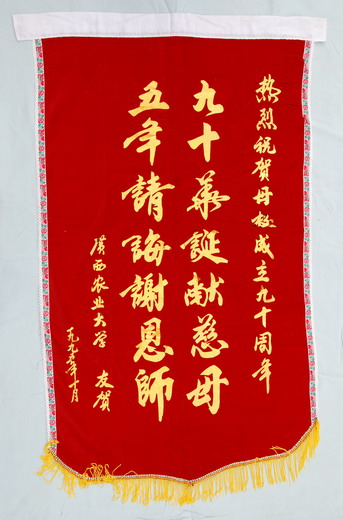 热烈祝贺母校成立九十周年
九十華誕献慈母
五年請誨謝恩師
廣西农业大学 友贺
一九九年十月